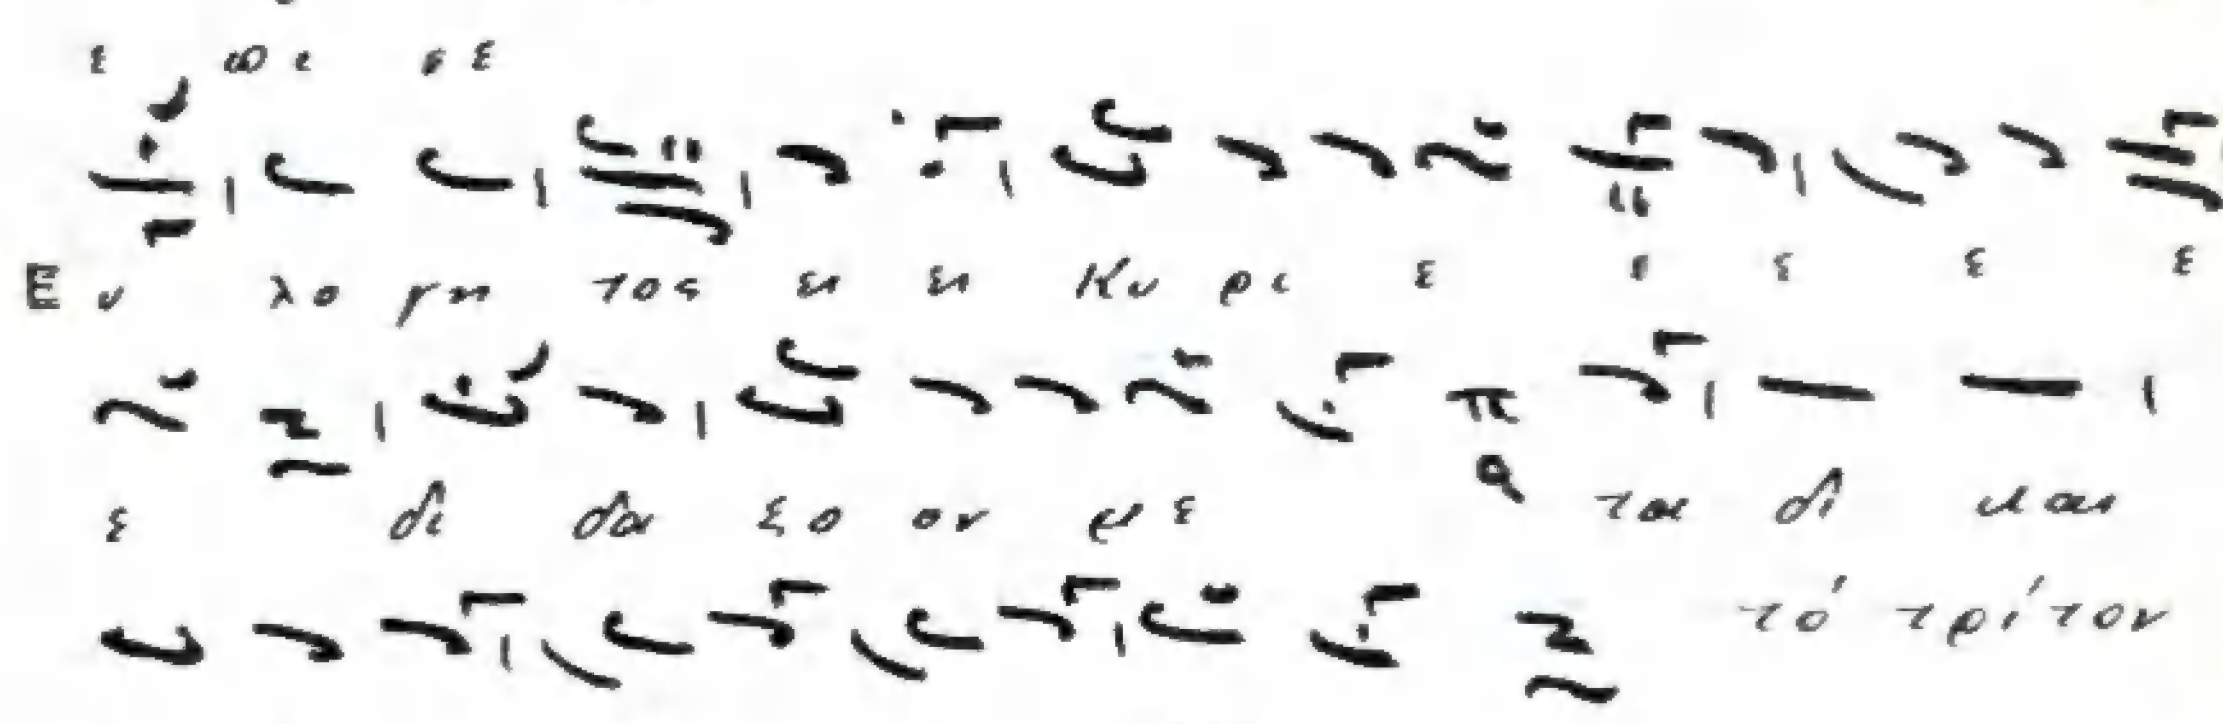 ε ωι ε ε
Ευ λο γη τος ει ει Κυ ρι ε ε ε ε ε
ε δι δα ξο ον με ε τα δι και
το τρίτον